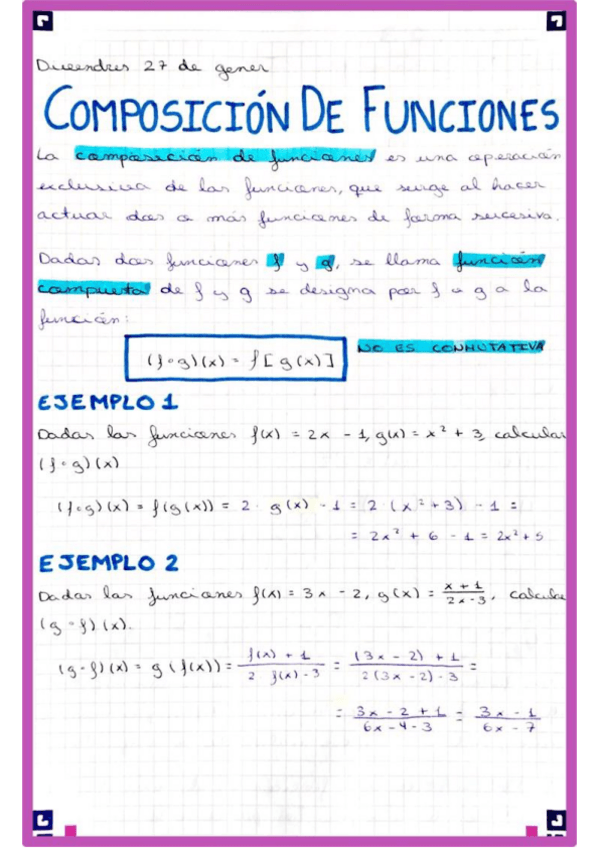 Divendres 27 de gener
COMPOSICIÓN DE FUNCIONES
La composición de funciones es una operación
exclusiva de las funciones, que surge al hacer
actuar dos o más funciones de forma sucesiva.
Dadas dos funciones f y g, se llama función
compuesta de f y g se designa por f o g a la
función:
(f∘g)(x) = f[g(x)]
NO ES CONMUTATIVA
EJEMPLO 1
Dadas las funciones f(x) = 2x - 1, g(x) = x² + 3, calcular
(f∘g)(x)
(f∘g)(x) = f(g(x)) = 2· g(x) - 1 = 2 (x² + 3) - 1 =
= 2x² + 6 - 1 = 2x² + 5
EJEMPLO 2
Dadas las funciones f(x) = 3x - 2, g(x) = (x + 1)/(2x - 3), calcular
(g∘f)(x).
(g∘f)(x) = g(f(x)) = (f(x) + 1)/(2 f(x) - 3) = ((3x - 2) + 1)/(2(3x - 2) - 3) =
= (3x - 2 + 1)/(6x - 4 - 3) = (3x - 1)/(6x - 7)